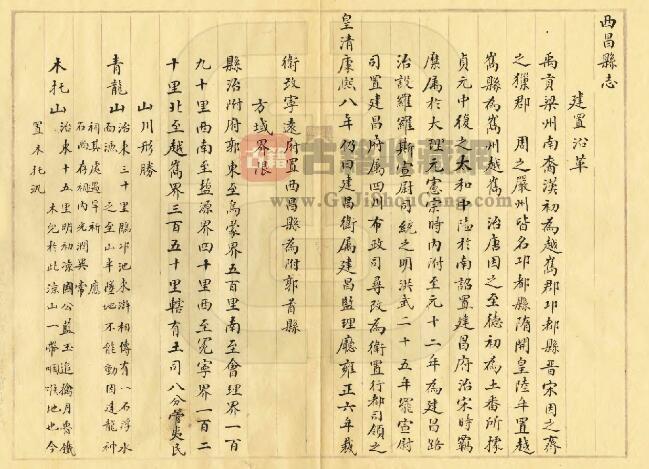 西昌縣志
建置沿革
禹貢梁州南裔漢初為越嶲郡邛都縣晉宋因之齊
之獠郡 周之嚴州皆名邛都縣隋開皇陸年置越
嶲縣為嶲州越嶲 治唐因之至德初為土番所據
貞元中復之大和中陥於南詔置建昌府治宋時羈
縻属於大理元憲宗時內附至元十二年為建昌路
治設羅羅斯宣尉司統之明洪武二十五年罷宣尉
司置建昌府属四川布政司尋改為衛置行都司領之
皇清康熙八年仍因建昌衛属建昌監理廳雍正六年裁
衛改寧遠府置西昌縣為附郭首縣
方域界限
縣治附府郭東至烏蒙界五百里南至會理界一百
九十里西南至鹽源界四十里西至冕寧界一百二
十里北至越嶲界三百五十里轄有土司八分管夷民
山川形勝
青龍山治東三十里臨邛池東滸相傳有八石浮水
而渡 之至山半墜地不能動因建龍神
祠其處遇旱祈 應
石西存祠內光潤異常
木托山治東十五里明初涼國公藍玉追擒月魯鐵
木兒於此涼山一帶咽喉地也今
置木托汛
古籍收藏网
www.GuJiShouCang.com